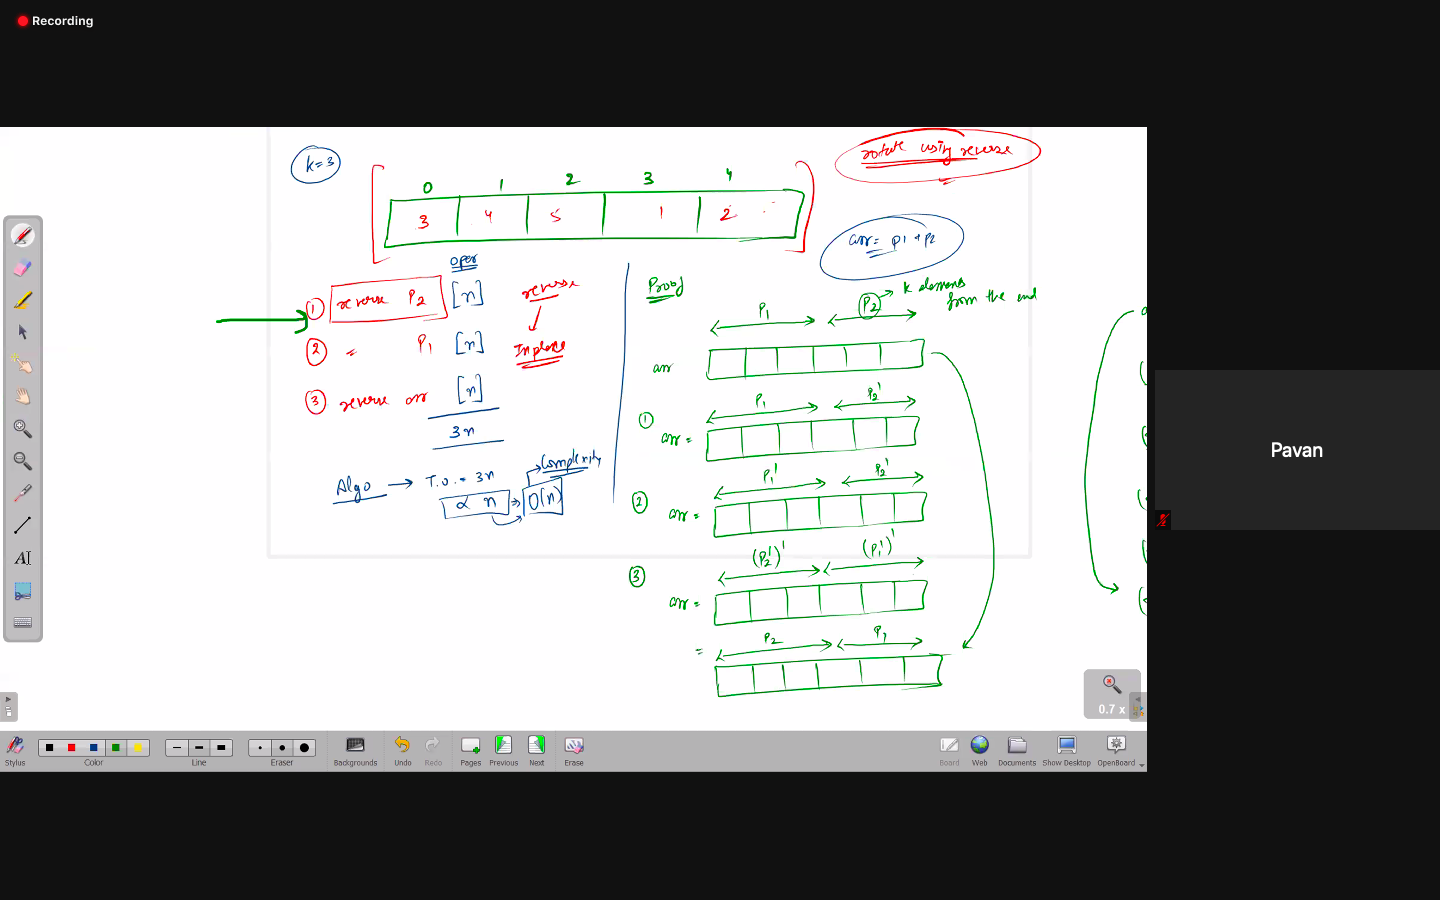 Recording
k=3
rotate using reverse
0 1 2 3 4
3 4 5 1 2
arr = P1 + P2
oper
① reverse P2 [n]
reverse
② = P1 [n]
Inplace
③ reverse arr [n]
3n
Algo → T.O. = 3n
complexity
∝ n → O(n)
Proof
P1 P2 → k elements
from the end
arr
P1 P2'
① arr =
P1' P2'
② arr =
(P2')' (P1')'
③ arr =
P2 P1
=
Pavan
0.7 x
Stylus Color Line Eraser Backgrounds Undo Redo Pages Previous Next Erase Board Web Documents Show Desktop OpenBoard